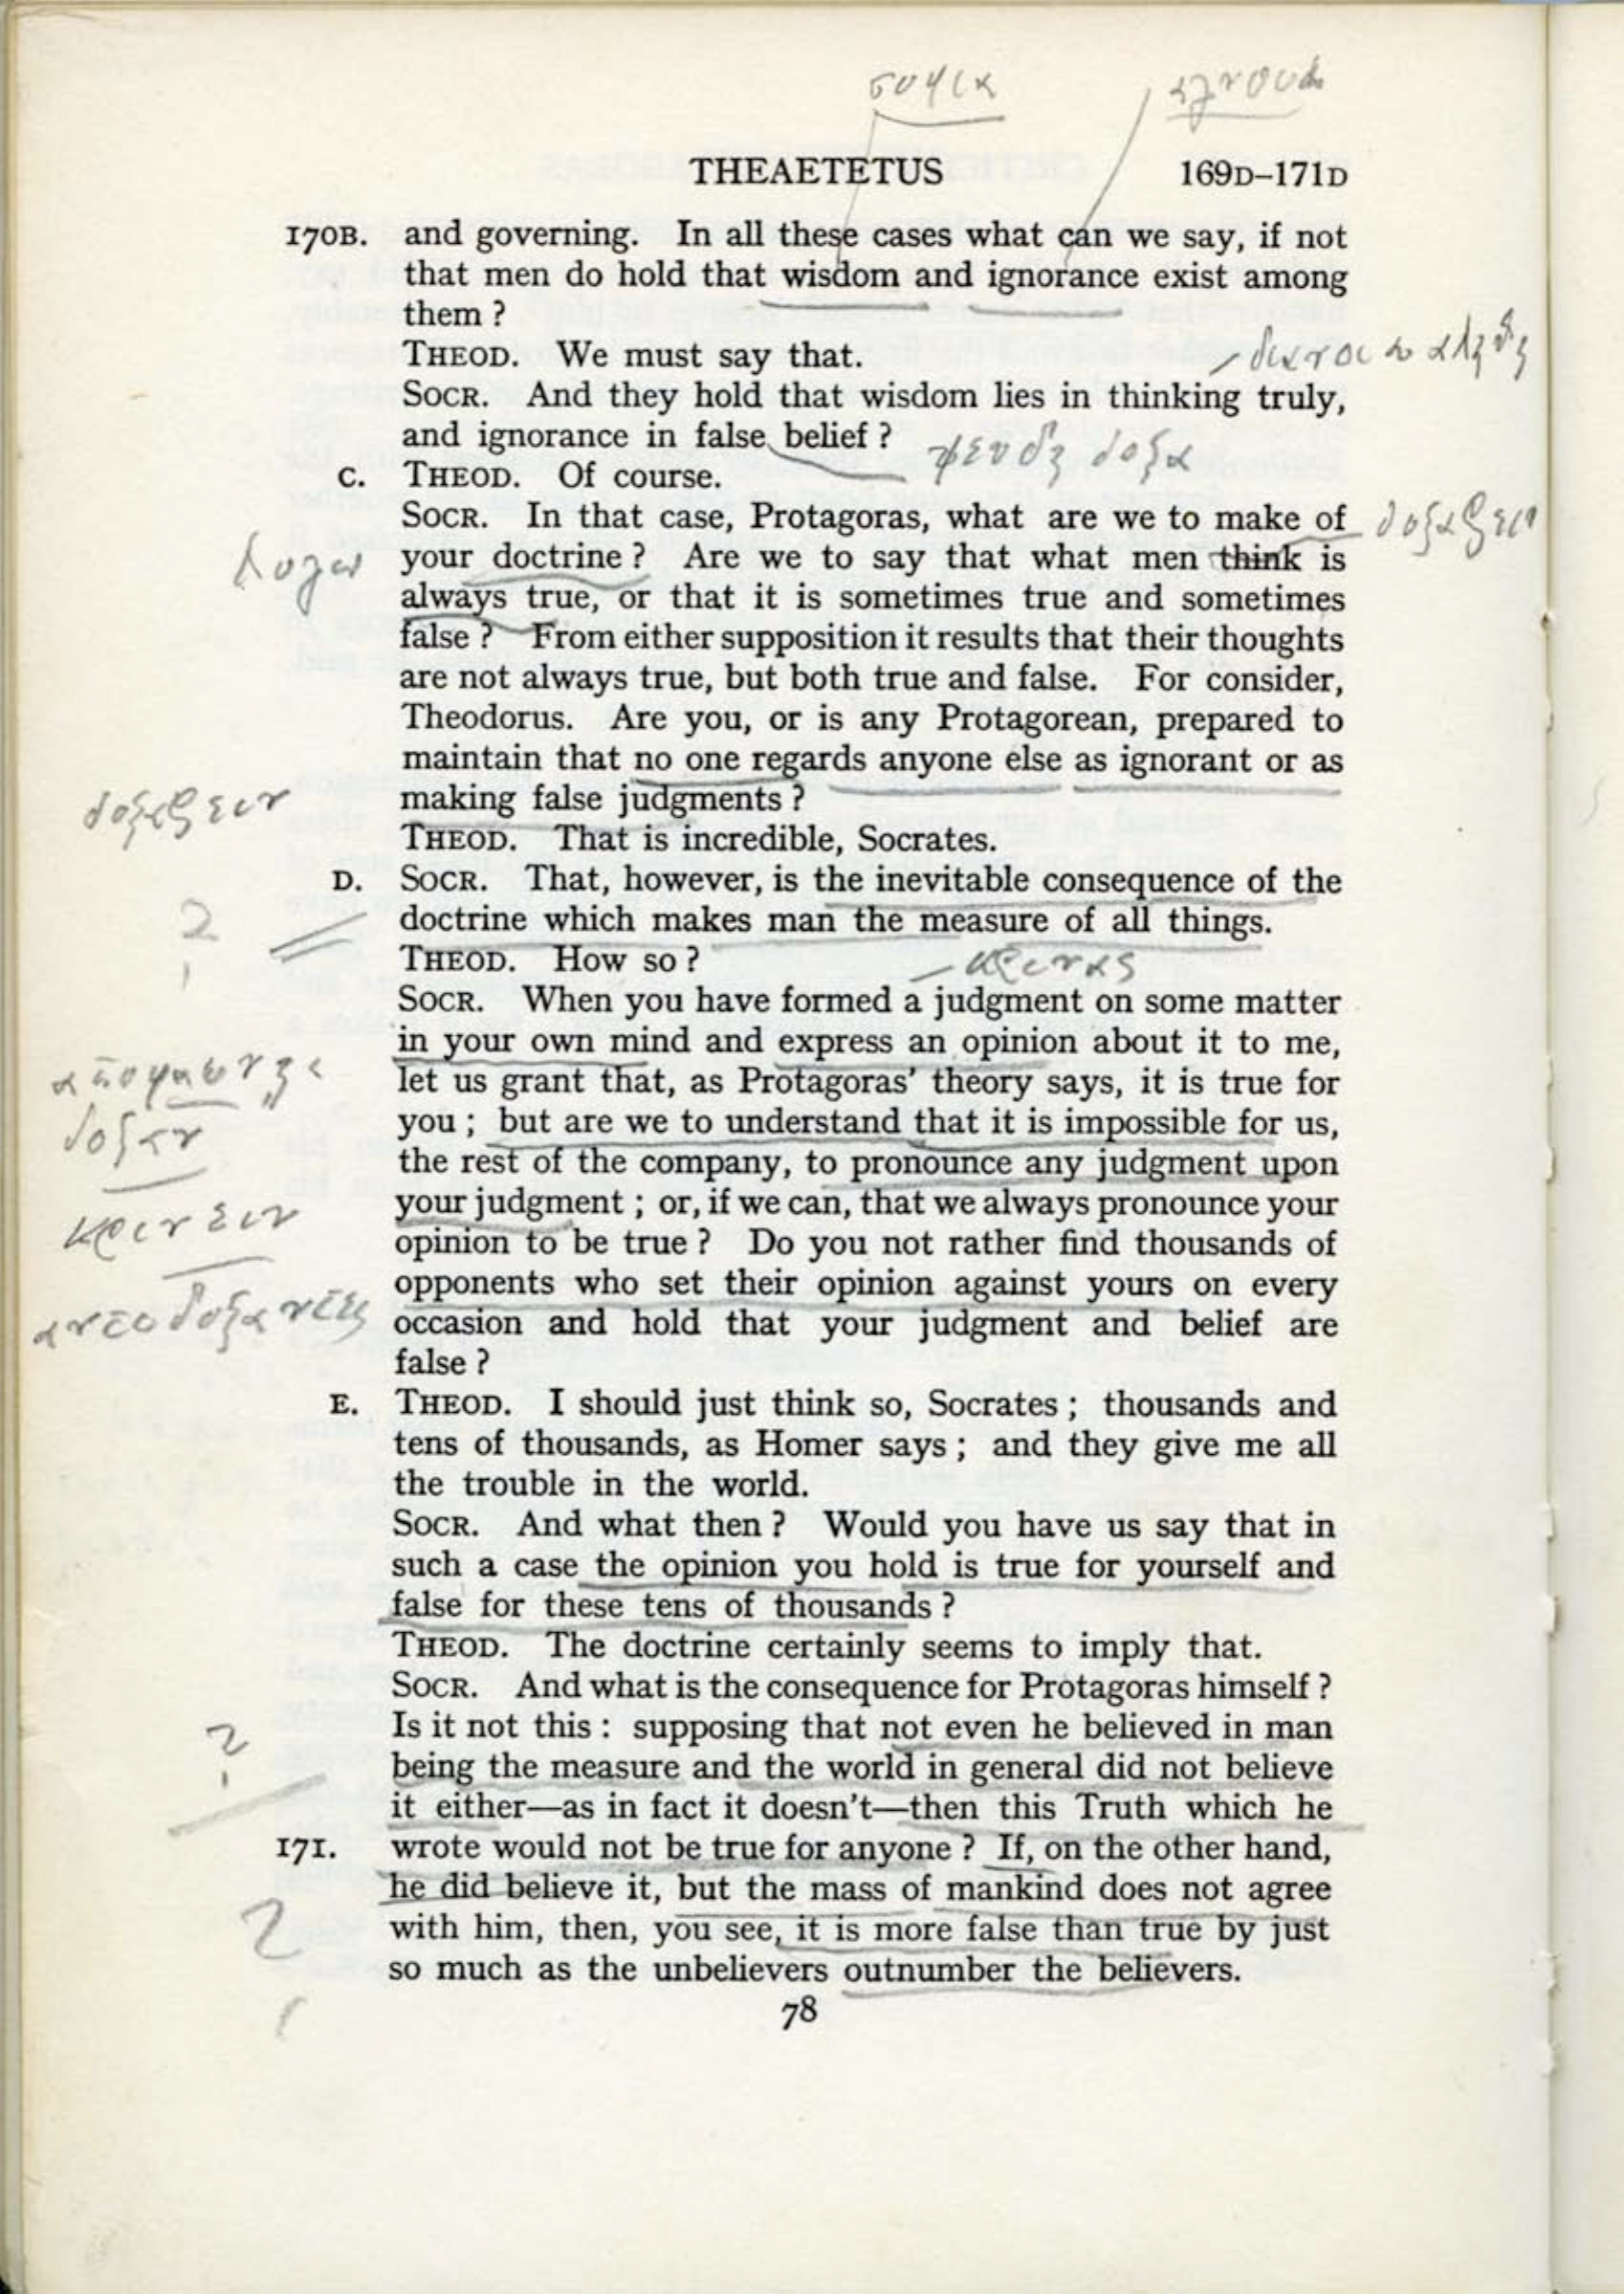 σοφια
THEAETETUS 169D–171D
170B. and governing. In all these cases what can we say, if not
that men do hold that wisdom and ignorance exist among
them ?
THEOD. We must say that.
SOCR. And they hold that wisdom lies in thinking truly,
and ignorance in false belief ? ψευδη δοξα
C. THEOD. Of course.
SOCR. In that case, Protagoras, what are we to make of δοξαζειν
λογω your doctrine ? Are we to say that what men think is
always true, or that it is sometimes true and sometimes
false ? From either supposition it results that their thoughts
are not always true, but both true and false. For consider,
Theodorus. Are you, or is any Protagorean, prepared to
maintain that no one regards anyone else as ignorant or as
δοξαζειν making false judgments ?
THEOD. That is incredible, Socrates.
D. SOCR. That, however, is the inevitable consequence of the
? doctrine which makes man the measure of all things.
THEOD. How so ? κρινας
SOCR. When you have formed a judgment on some matter
in your own mind and express an opinion about it to me,
let us grant that, as Protagoras' theory says, it is true for
δοξαν you ; but are we to understand that it is impossible for us,
the rest of the company, to pronounce any judgment upon
κρινειν your judgment ; or, if we can, that we always pronounce your
opinion to be true ? Do you not rather find thousands of
opponents who set their opinion against yours on every
occasion and hold that your judgment and belief are
false ?
E. THEOD. I should just think so, Socrates ; thousands and
tens of thousands, as Homer says ; and they give me all
the trouble in the world.
SOCR. And what then ? Would you have us say that in
such a case the opinion you hold is true for yourself and
false for these tens of thousands ?
THEOD. The doctrine certainly seems to imply that.
SOCR. And what is the consequence for Protagoras himself ?
? Is it not this : supposing that not even he believed in man
being the measure and the world in general did not believe
it either—as in fact it doesn't—then this Truth which he
171. wrote would not be true for anyone ? If, on the other hand,
he did believe it, but the mass of mankind does not agree
? with him, then, you see, it is more false than true by just
so much as the unbelievers outnumber the believers.
78